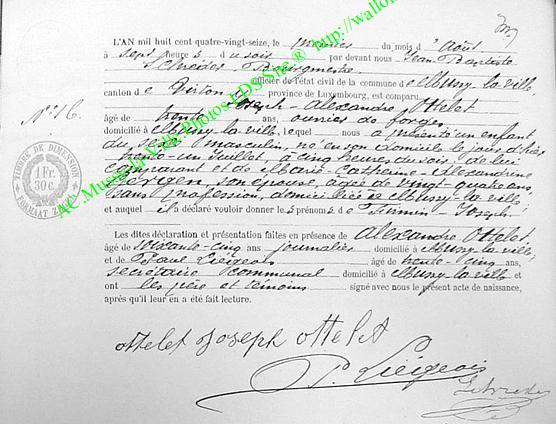 L'AN mil huit cent quatre-vingt-seize, le premier du mois d'Août
à sept heures du soir par devant nous Jean Baptiste
Schréder, Bourgmestre,
officier de l'état civil de la commune de Mussy-la-ville
canton de Virton, province de Luxembourg, est comparu
N° 16.
Joseph-Alexandre Ottelet
âgé de trente ans, ouvrier de forges
domicilié à Mussy-la-ville, lequel nous a présenté un enfant
du sexe masculin, né en son domicile le jour d'hier
trente-un juillet, à cinq heures du soir, de lui
comparant et de Marie-Catherine-Alexandrine
son épouse, âgée de vingt-quatre ans,
sans profession, domiciliée à Mussy-la-ville
et auquel il a déclaré vouloir donner les prénoms de Firmin-Joseph
Les dites déclaration et présentation faites en présence de Alexandre Ottelet,
âgé de soixante-cinq ans journalier domicilié à Mussy-la-ville
et de Paul Liégeois âgé de trente-cinq ans,
secrétaire communal domicilié à Mussy-la-ville et
ont les père et témoins signé avec nous le présent acte de naissance,
après qu'il leur en a été fait lecture.
ottelet Joseph ottelet
P. Liégeois
Schréder
TIMBRE DE DIMENSION
1 Fr.
30 c.
AC Mussy-la-Ville Photos LDS Site ® http://wallo